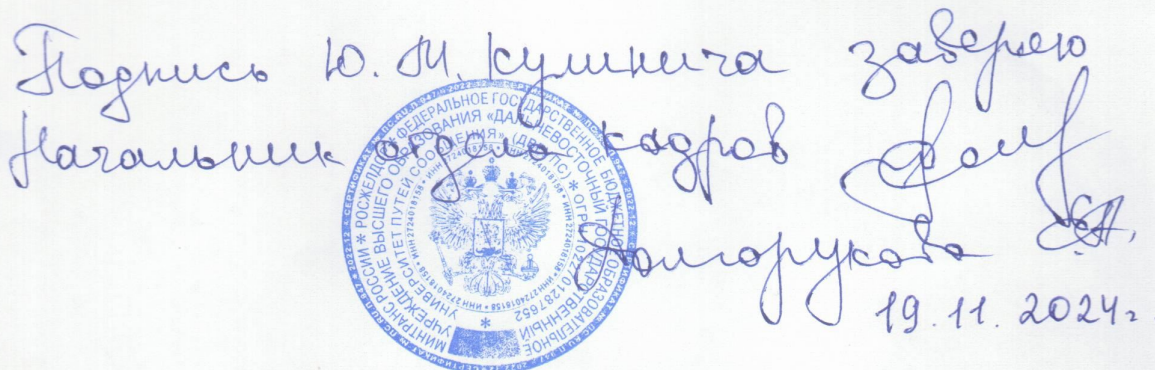 Подпись Ю. М. Кулинича заверяю
Начальник отдела кадров
Долгорукова
19.11.2024г.
МИНТРАНС РОССИИ * РОСЖЕЛДОР * ФЕДЕРАЛЬНОЕ ГОСУДАРСТВЕННОЕ БЮДЖЕТНОЕ ОБРАЗОВАТЕЛЬНОЕ
УЧРЕЖДЕНИЕ ВЫСШЕГО ОБРАЗОВАНИЯ «ДАЛЬНЕВОСТОЧНЫЙ ГОСУДАРСТВЕННЫЙ
УНИВЕРСИТЕТ ПУТЕЙ СООБЩЕНИЯ» (ДВГУПС) * ОГРН 1022701287652 *
ИНН 2724018158 * ИНН 2724018158 * ИНН 2724018158